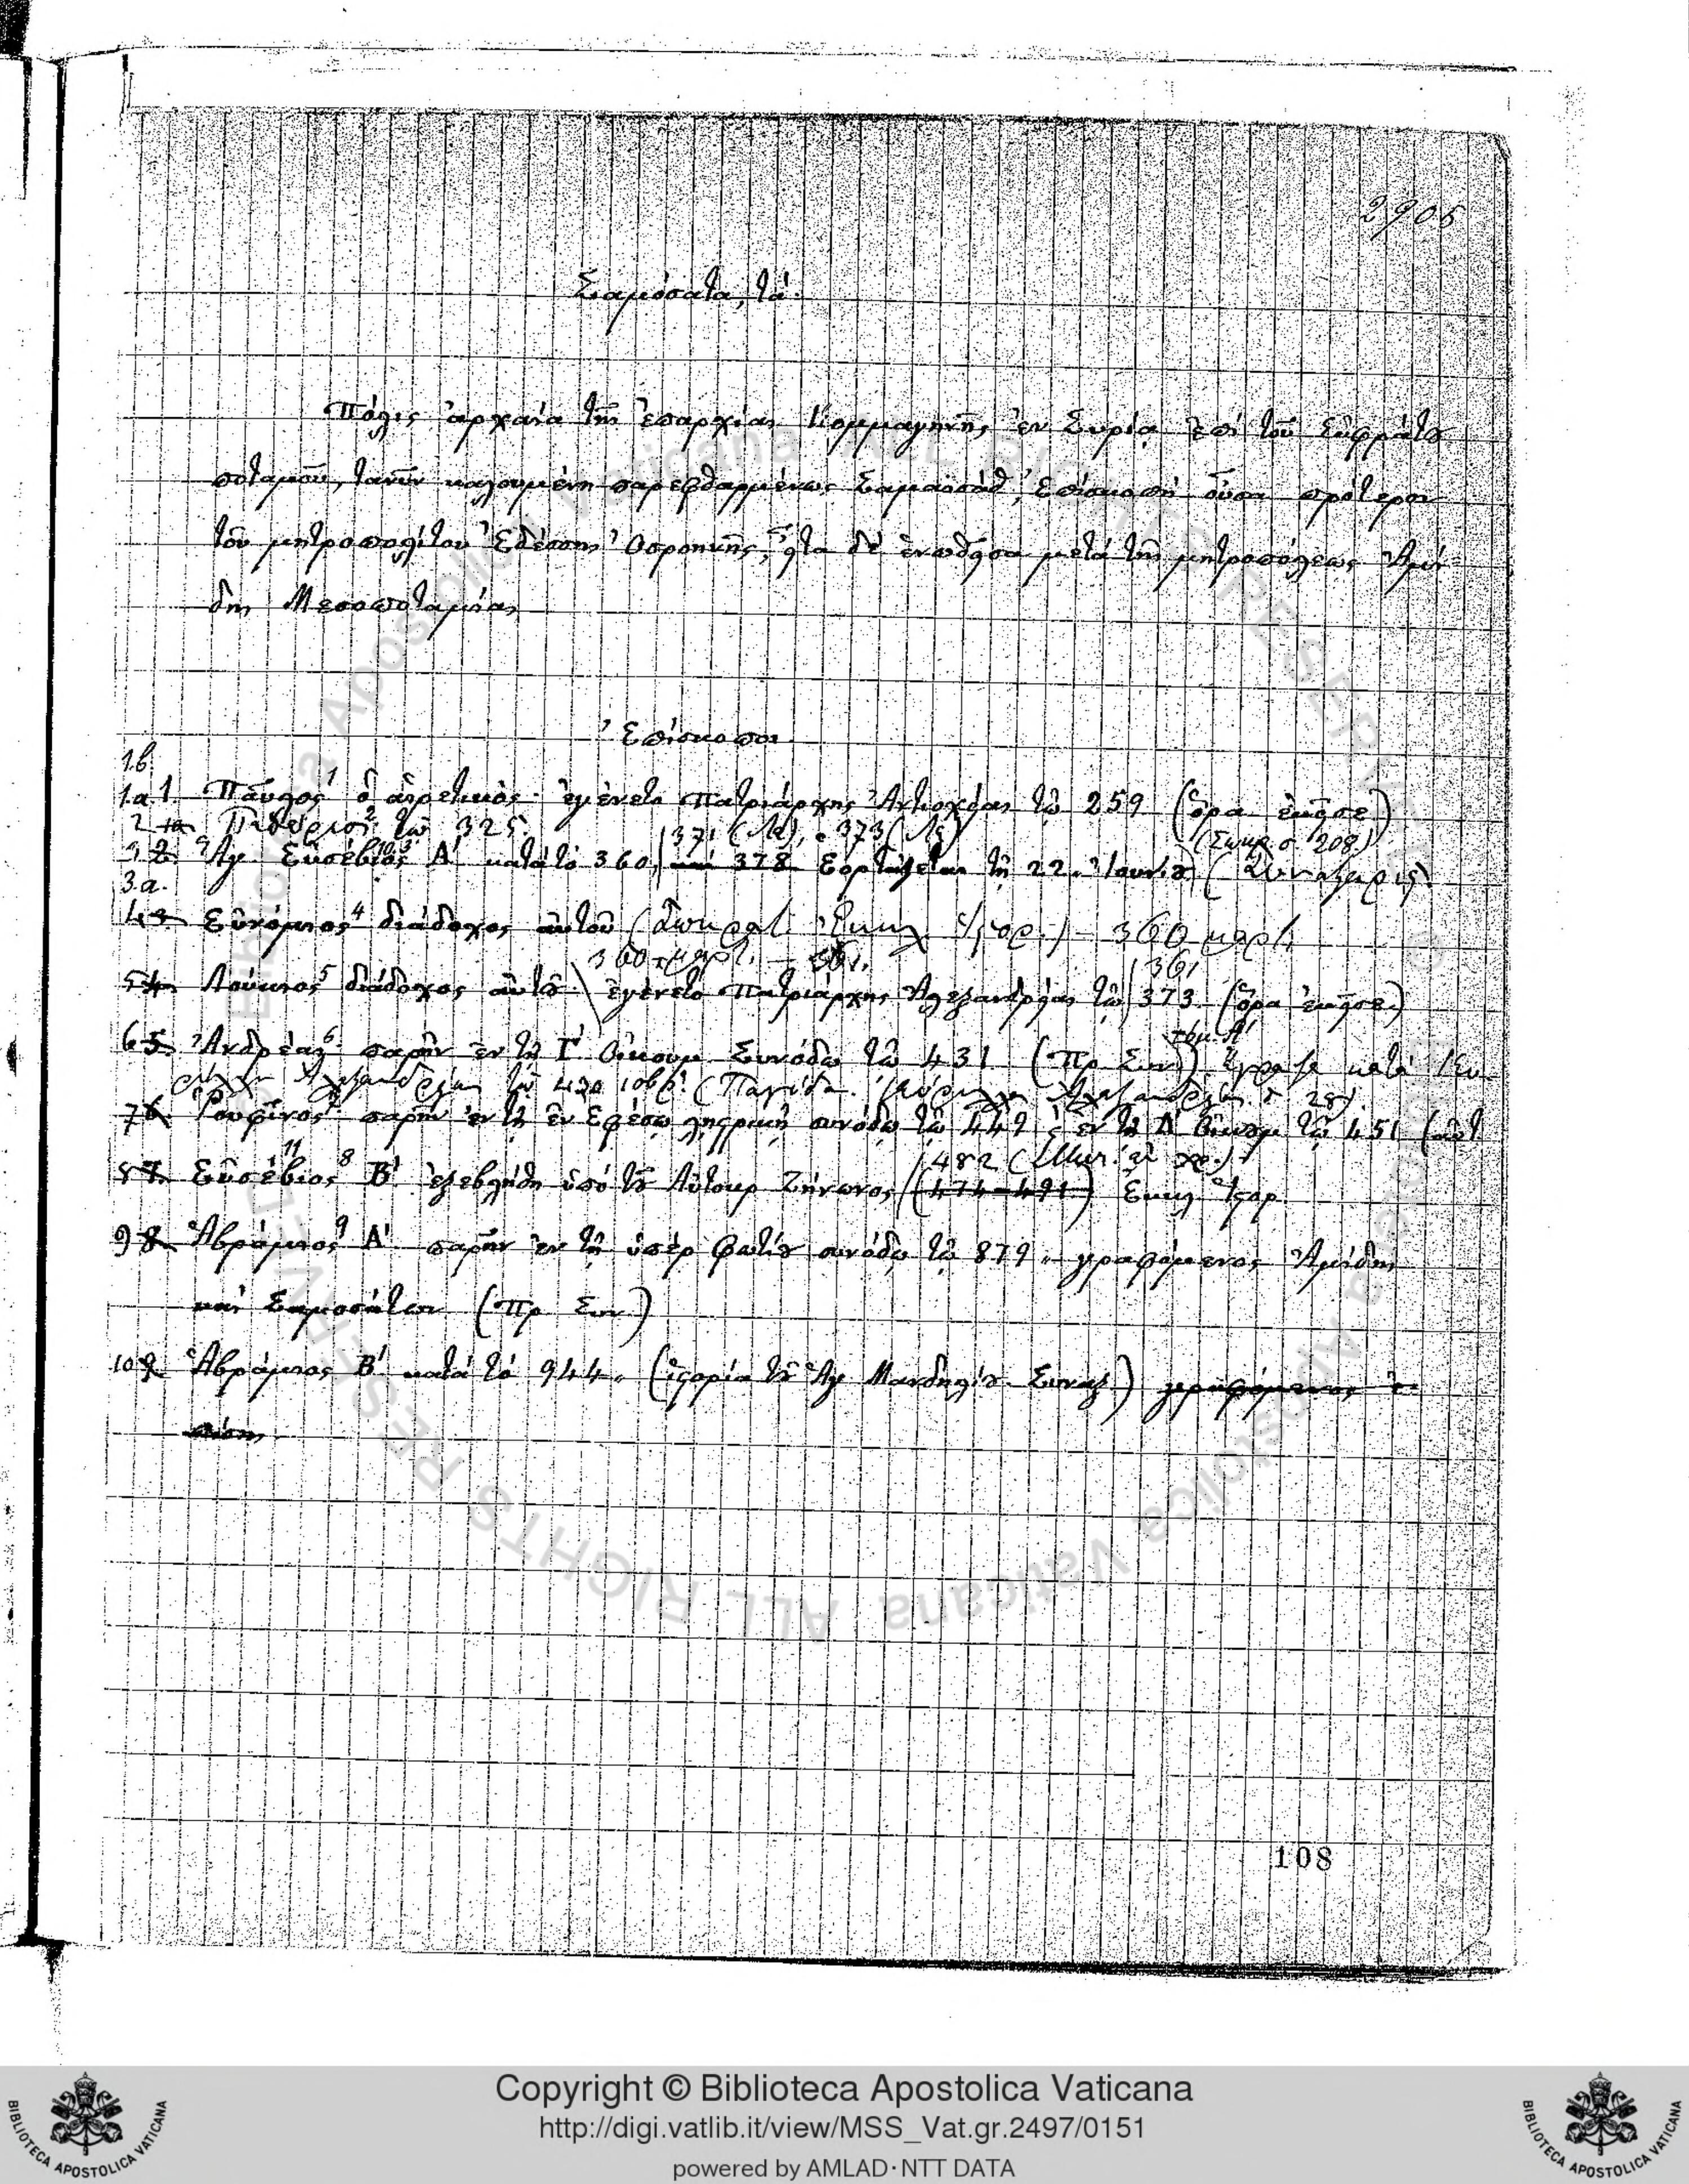 2905
Σαμόσατα, τά.
Πόλις ἀρχαία τῆς ἐπαρχίας Κομμαγηνῆς ἐν Συρίᾳ ἐπί τοῦ Εὐφράτου
ποταμοῦ, τανῦν καλουμένη παρεφθαρμένως Σαμαϊσάθ, Ἐπισκοπή οὖσα πρότερον
τοῦ μητροπολίτου Ἐδέσσης Ὀσροηνῆς, εἶτα δέ ἑνωθεῖσα μετά τῆς μητροπόλεως Ἀμί
δης Μεσοποταμίας
Ἐπίσκοποι
1β.
1.α 1. Παῦλος 1 ὁ αἱρετικός ἐγένετο Πατριάρχης Ἀντιοχείας τῷ 259 (ὅρα ἐκεῖσε)
2 1α 2 τῷ 325.
371 373 (Σωκρ. σ. 208.)
3 2 Ἁγ. Εὐσέβιος 3 Α' κατά τό 360, καί 378 Ἑορτάζεται τῇ 22 Ἰουνίου (Συναξαρις)
3.α.
4 3 Εὐνόμιος 4 διάδοχος αὐτοῦ (Σωκρατ. Ἐκκλ. Ἱστορ.) 360 μαρτ.
360 μαρτ. – 361. 361
5 4 Λούκιος 5 διάδοχος αὐτοῦ ἐγένετο Πατριάρχης Ἀλεξανδρείας τῷ 373 (ὅρα ἐκεῖσε)
τόμ. Α'
6 5 Ἀνδρέας 6 παρῆν ἐν τῇ Γ' Οἰκουμ. Συνόδῳ τῷ 431 (Πρ. Συν.) ἔγραψε κατά Κυ
ρίλλου Ἀλεξανδρείας τῷ 430
7 6 Ῥουφῖνος 7 παρῆν ἐν τῇ ἐν Ἐφέσῳ λῃστρικῇ συνόδῳ τῷ 449 καί ἐν τῇ Δ' Οἰκουμ. τῷ 451 (αὐτ.
11 482
8 7 Εὐσέβιος 8 Β' ἐξεβλήθη ὑπό τοῦ Αὐτοκρ. Ζήνωνος (474–491) Ἐκκλ. Ἱστορ.
9 8 Ἀβράμιος 9 Α' παρῆν ἐν τῇ ὑπέρ Φωτίου συνόδῳ τῷ 879 γραφόμενος Ἀμίδης
καί Σαμοσάτων (Πρ. Συν.)
10 9 Ἀβράμιος Β' κατά τό 944 (ἱστορία τοῦ Ἁγ. Μανδηλίου Συναξ.) γραφόμενος ἐ
πίσης
108
Copyright © Biblioteca Apostolica Vaticana
http://digi.vatlib.it/view/MSS_Vat.gr.2497/0151
powered by AMLAD·NTT DATA
BIBLIOTECA APOSTOLICA VATICANA
BIBLIOTECA APOSTOLICA VATICANA